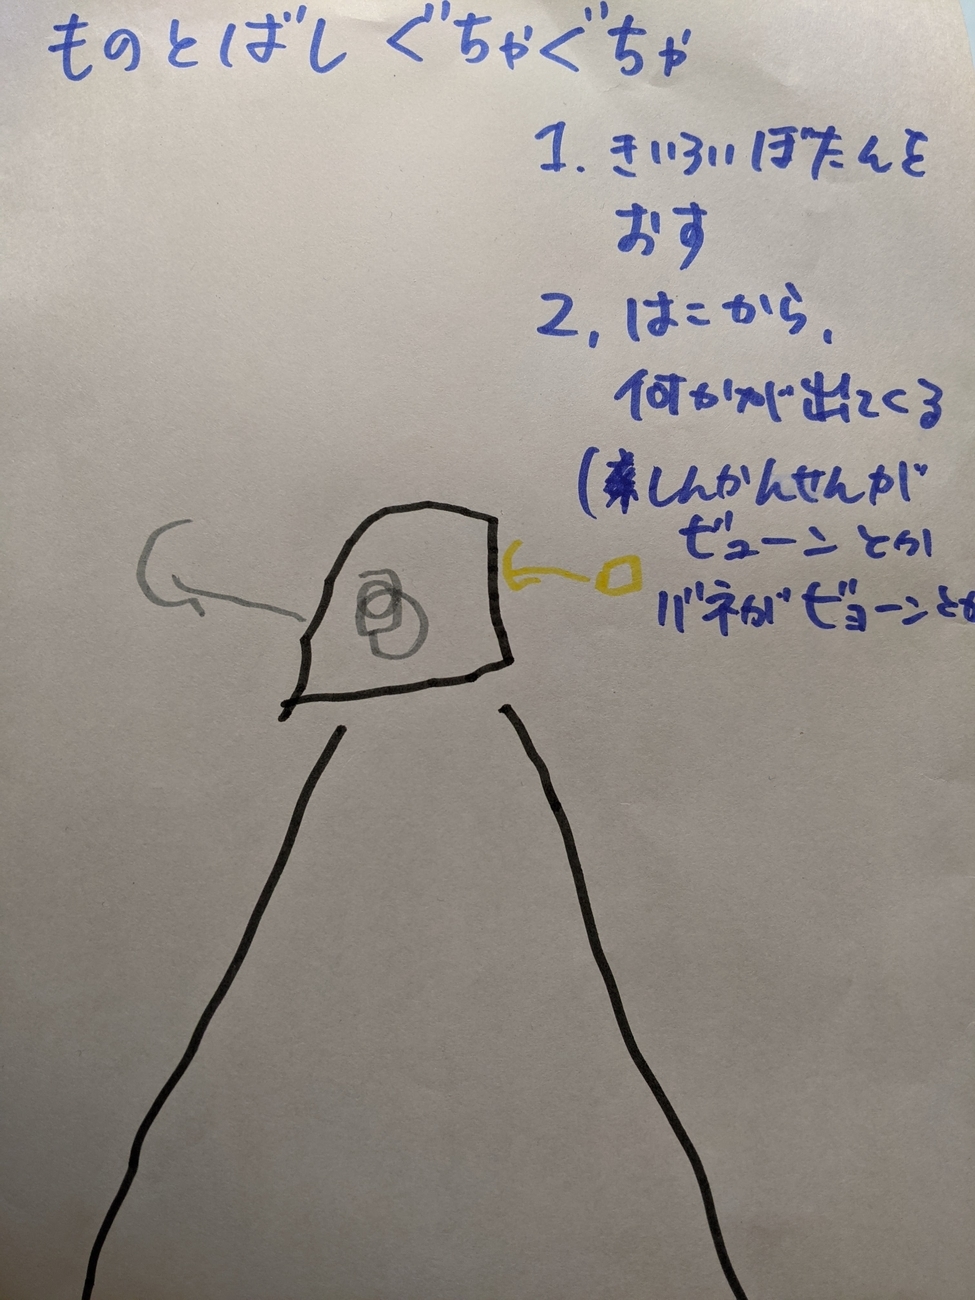 ものとばし ぐちゃぐちゃ
1. きいろいぼたんを
おす
2, はこから、
何かが出てくる
(しんかんせんが
ビューンとか
バネがビョーンとか